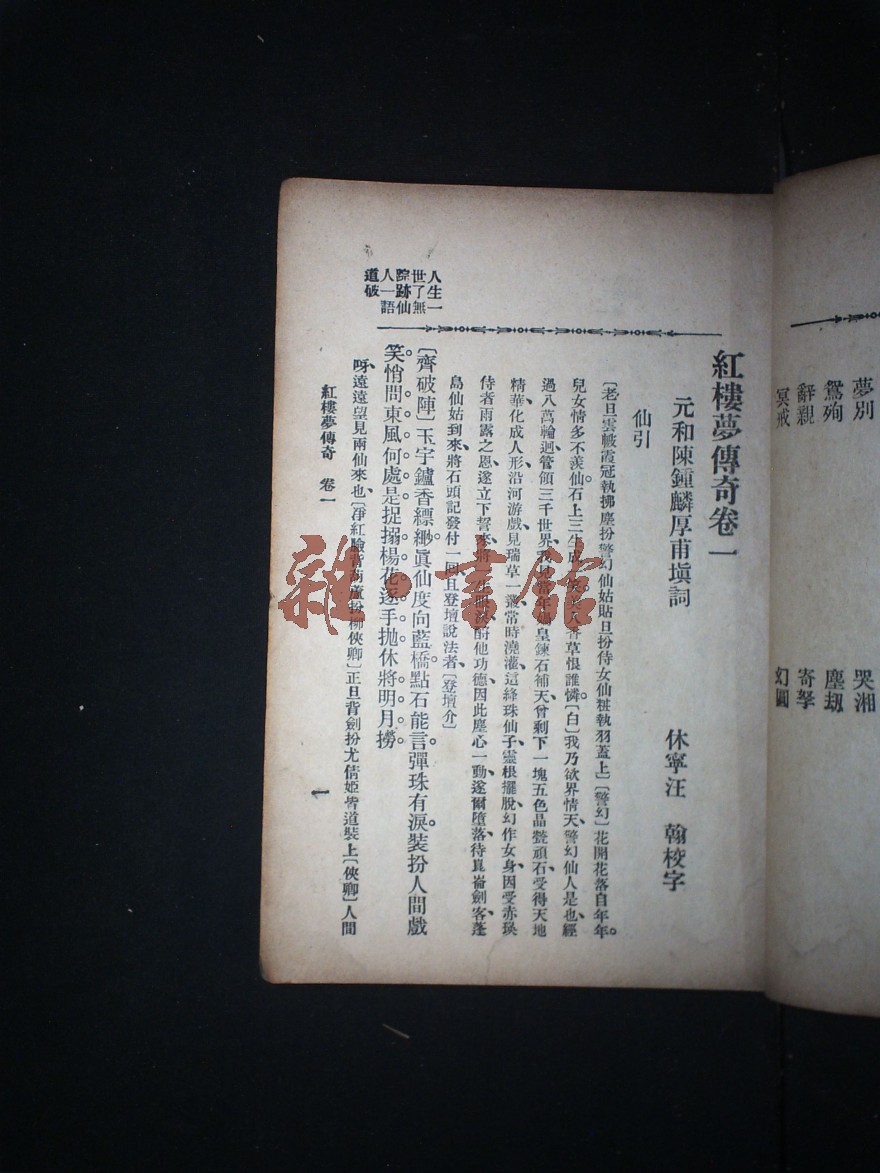 夢別
哭湘
鴛殉
塵劫
辭親
寄孥
冥戒
幻圓
人生一
世了無
踪跡仙
人一語
道破
紅樓夢傳奇卷一
元和陳鍾麟厚甫塡詞
休寧汪 翰校字
仙引
〔老旦雲帔霞冠執拂塵扮警幻仙姑貼旦扮侍女仙粧執羽蓋上〕〔警幻〕花開花落自年年。
兒女情多不羨仙石上三生成 香草恨誰憐〔白〕我乃欲界情天、警幻仙人是也、經
過八萬輪迴、管領三千世界、我見當年媧皇鍊石補天、曾剩下一塊五色晶瑩頑石、受得天地
精華、化成人形、沿河游戲、見瑞草一叢、常時澆灌、這絳珠仙子靈根擺脫、幻作女身、因受赤瑛
侍者雨露之恩、遂立下誓來、將一生眼淚、酧他功德、因此塵心一動、遂爾墮落、待崑崙劍客、蓬
島仙姑到來、將石頭記發付一回、且登壇說法者、〔登壇介〕
〔齊破陣〕玉宇鑪香縹緲。眞仙度向藍橋。點石能言。彈珠有淚。裝扮人間戲
笑。悄問東風何處是。捉搦楊花逐手拋。休將明月撈。
呀、遠遠望見兩仙來也、〔淨紅臉背葫蘆扮柳俠卿〕正旦背劍扮尤倩姬皆道裝上〔俠卿〕人間
紅樓夢傳奇 卷一
一
雜·書館